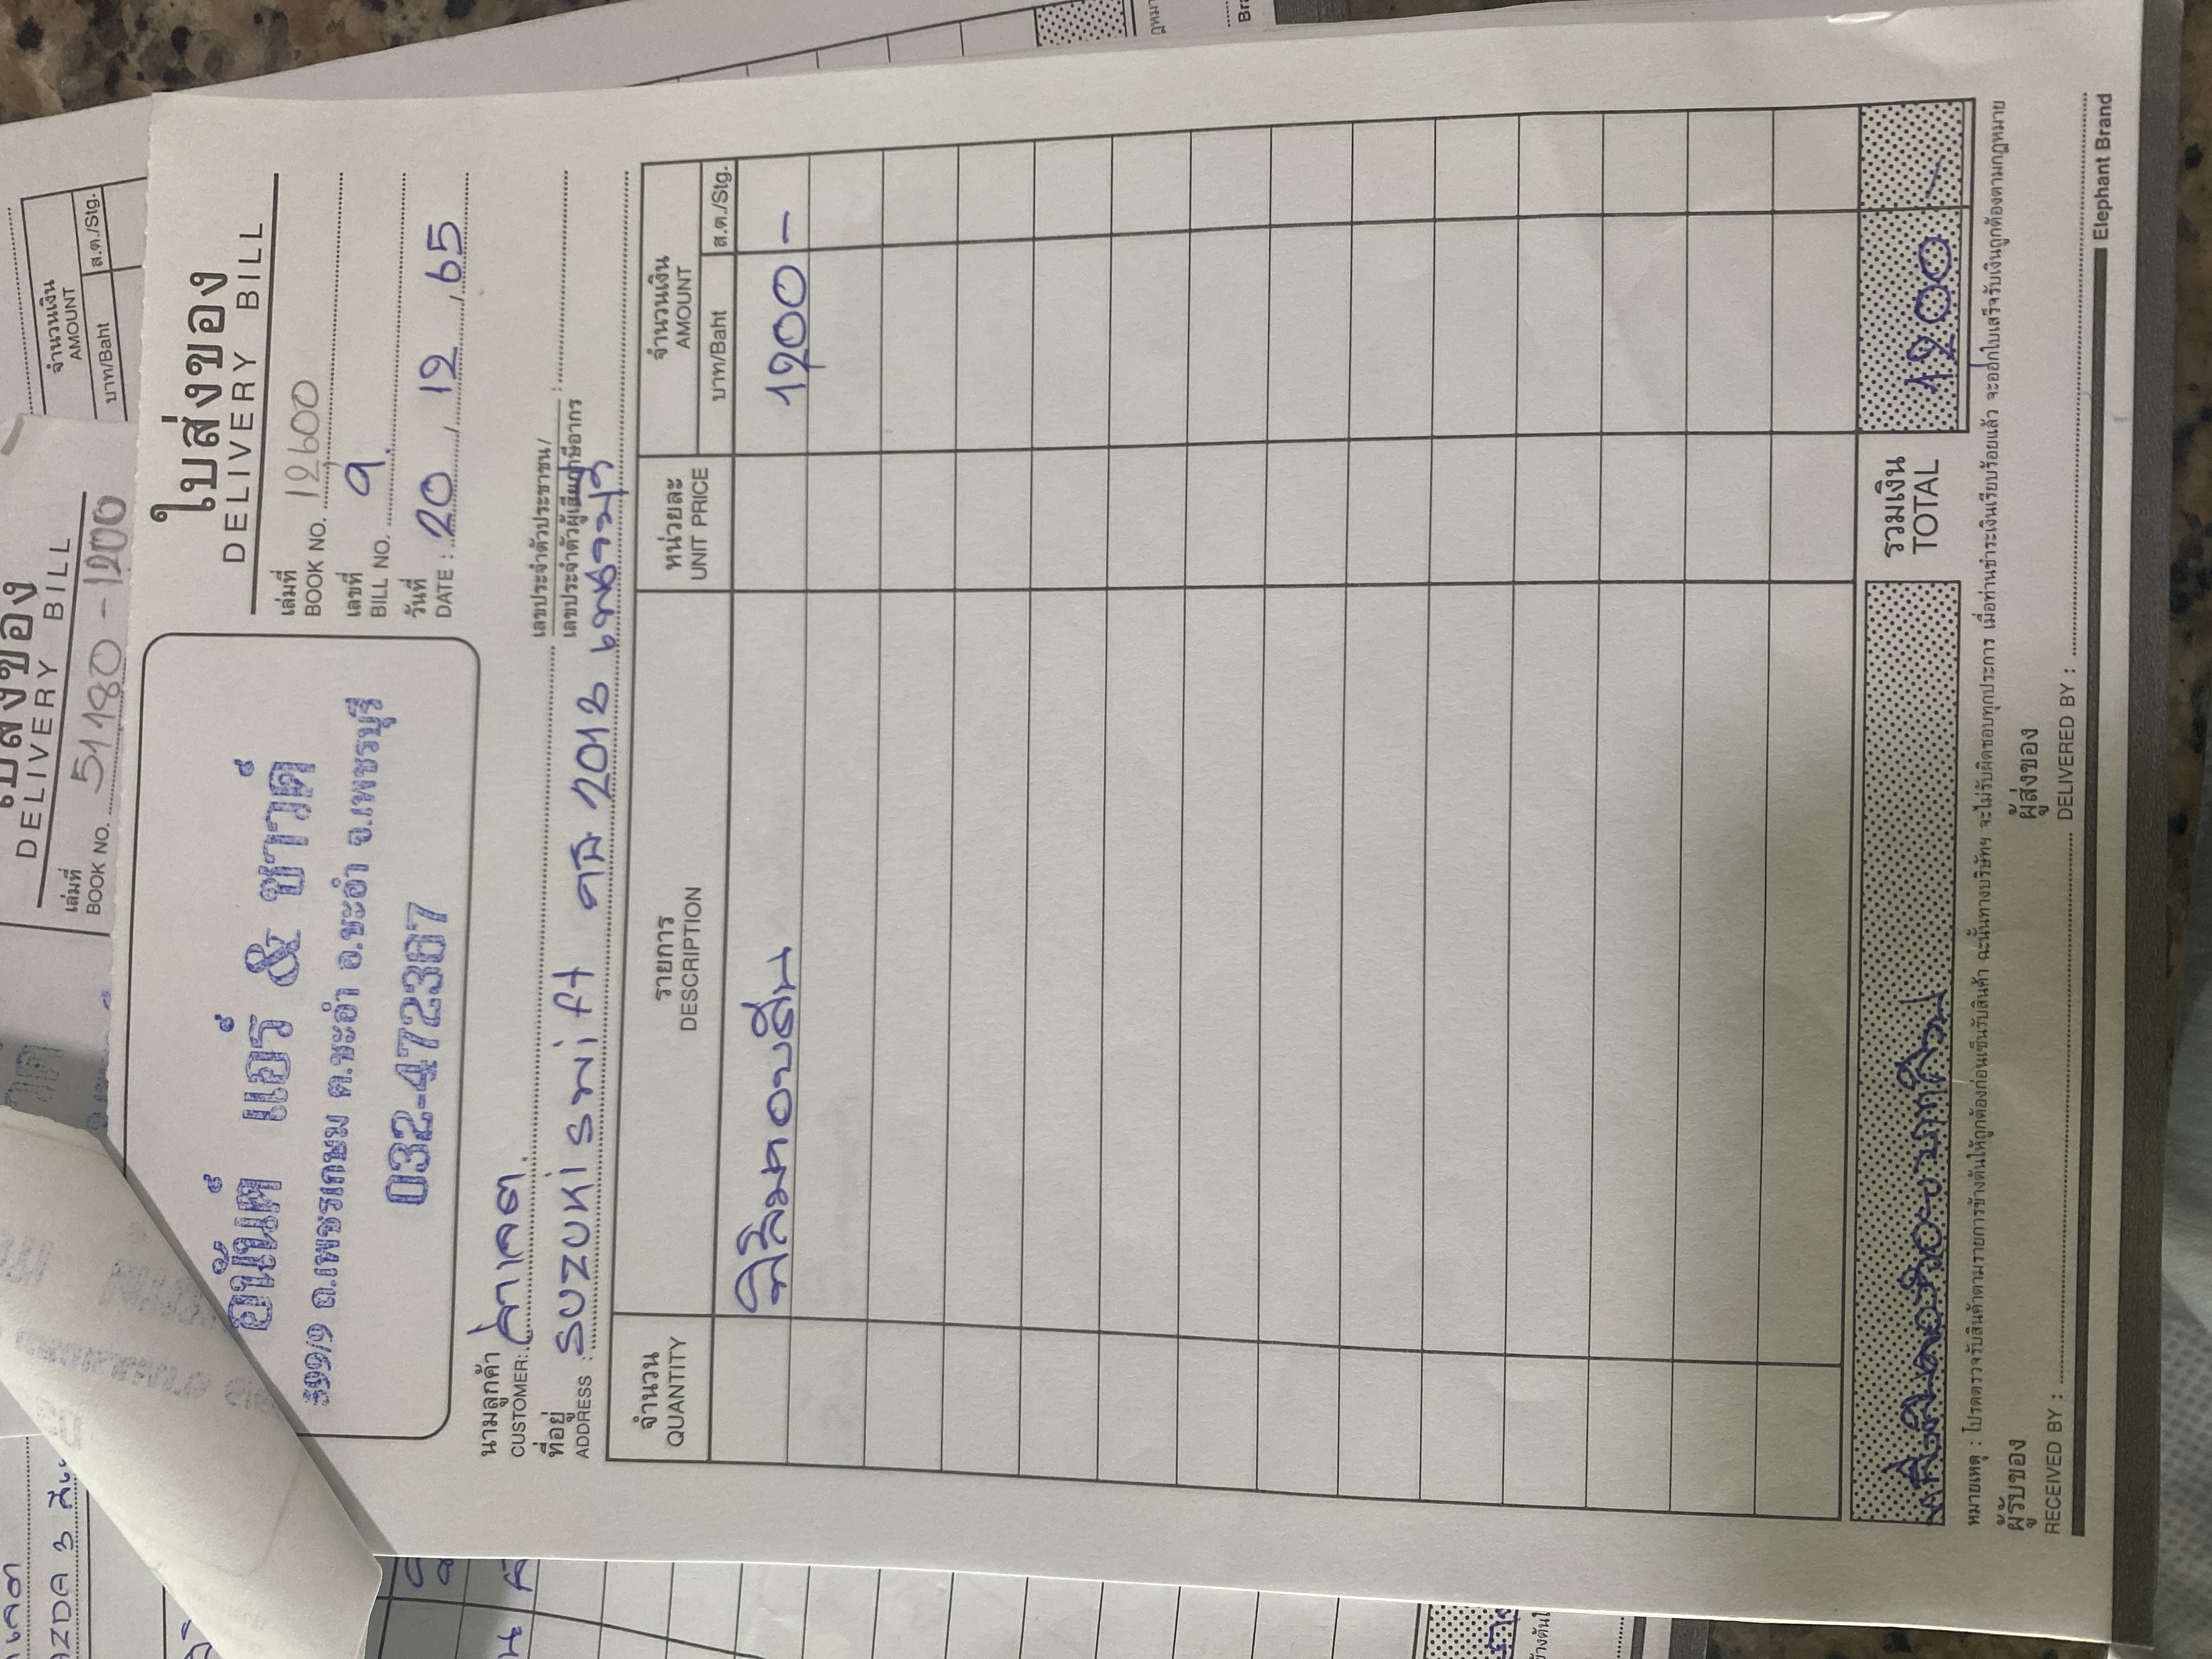 ใบส่งของ
DELIVERY BILL
เล่มที่
BOOK NO. 12600
เลขที่
BILL NO. 9
วันที่
DATE : 20 / 12 / 65
อนันต์ แอร์ & ซาวด์
ถ.เพชรเกษม ต.ชะอำ อ.ชะอำ จ.เพชรบุรี
032-472307
นามลูกค้า
CUSTOMER:
เลขประจำตัวประชาชน/
เลขประจำตัวผู้เสียภาษีอากร :
ที่อยู่
ADDRESS : SUZUKI swift 2012
จำนวน
QUANTITY
รายการ
DESCRIPTION
หน่วยละ
UNIT PRICE
จำนวนเงิน
AMOUNT
บาท/Baht ส.ต./Stg.
ฟิล์มรอบคัน 1200 -
รวมเงิน
TOTAL
1200 -
หมายเหตุ : โปรดตรวจรับสินค้าตามรายการข้างต้นให้ถูกต้องก่อนเซ็นรับสินค้า ฉะนั้นทางบริษัทฯ จะไม่รับผิดชอบทุกประการ เมื่อท่านชำระเงินเรียบร้อยแล้ว จะออกใบเสร็จรับเงินถูกต้องตามกฎหมาย
ผู้รับของ
RECEIVED BY :
ผู้ส่งของ
DELIVERED BY :
Elephant Brand
DELIVERY BILL
เล่มที่
BOOK NO. 51180 - 1200
จำนวนเงิน
AMOUNT
บาท/Baht ส.ต./Stg.